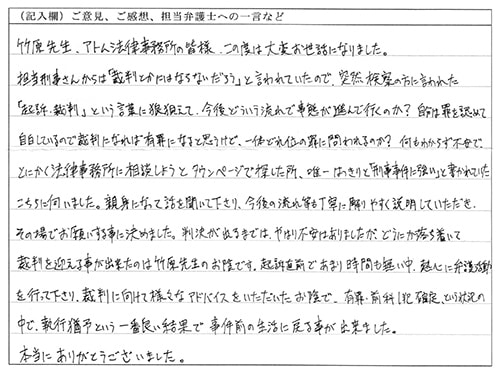 (記入欄)ご意見、ご感想、担当弁護士への一言など
竹原先生、アトム法律事務所の皆様、この度は大変お世話になりました。
担当刑事さんからは「裁判とかにはならないだろう」と言われていたので、突然検察の方に言われた
「起訴・裁判」という言葉に狼狽えて、今後どういう流れで事態が進んで行くのか? 自分は罪を認めて
自白しているので裁判になれば有罪になると思うけど、一体どれ位の罪に問われるのか? 何もわからず不安で
とにかく法律事務所に相談しようとタウンページで探した所、唯一はっきりと「刑事事件に強い」と書かれていた
こちらに伺いました。親身になって話を聞いて下さり、今後の流れ等も丁寧に解りやすく説明していただき、
その場でお願いする事に決めました。判決が出るまでは、やはり不安はありましたが、どうにか落ち着いて
裁判を迎える事が出来たのは竹原先生のお陰です。起訴直前であまり時間も無い中、熱心に弁護活動
を行って下さり、裁判に向けて様々なアドバイスをいただいたお陰で、有罪・前科1犯確定、という状況の
中で、執行猶予という一番良い結果で事件前の生活に戻る事が出来ました。
本当にありがとうございました。